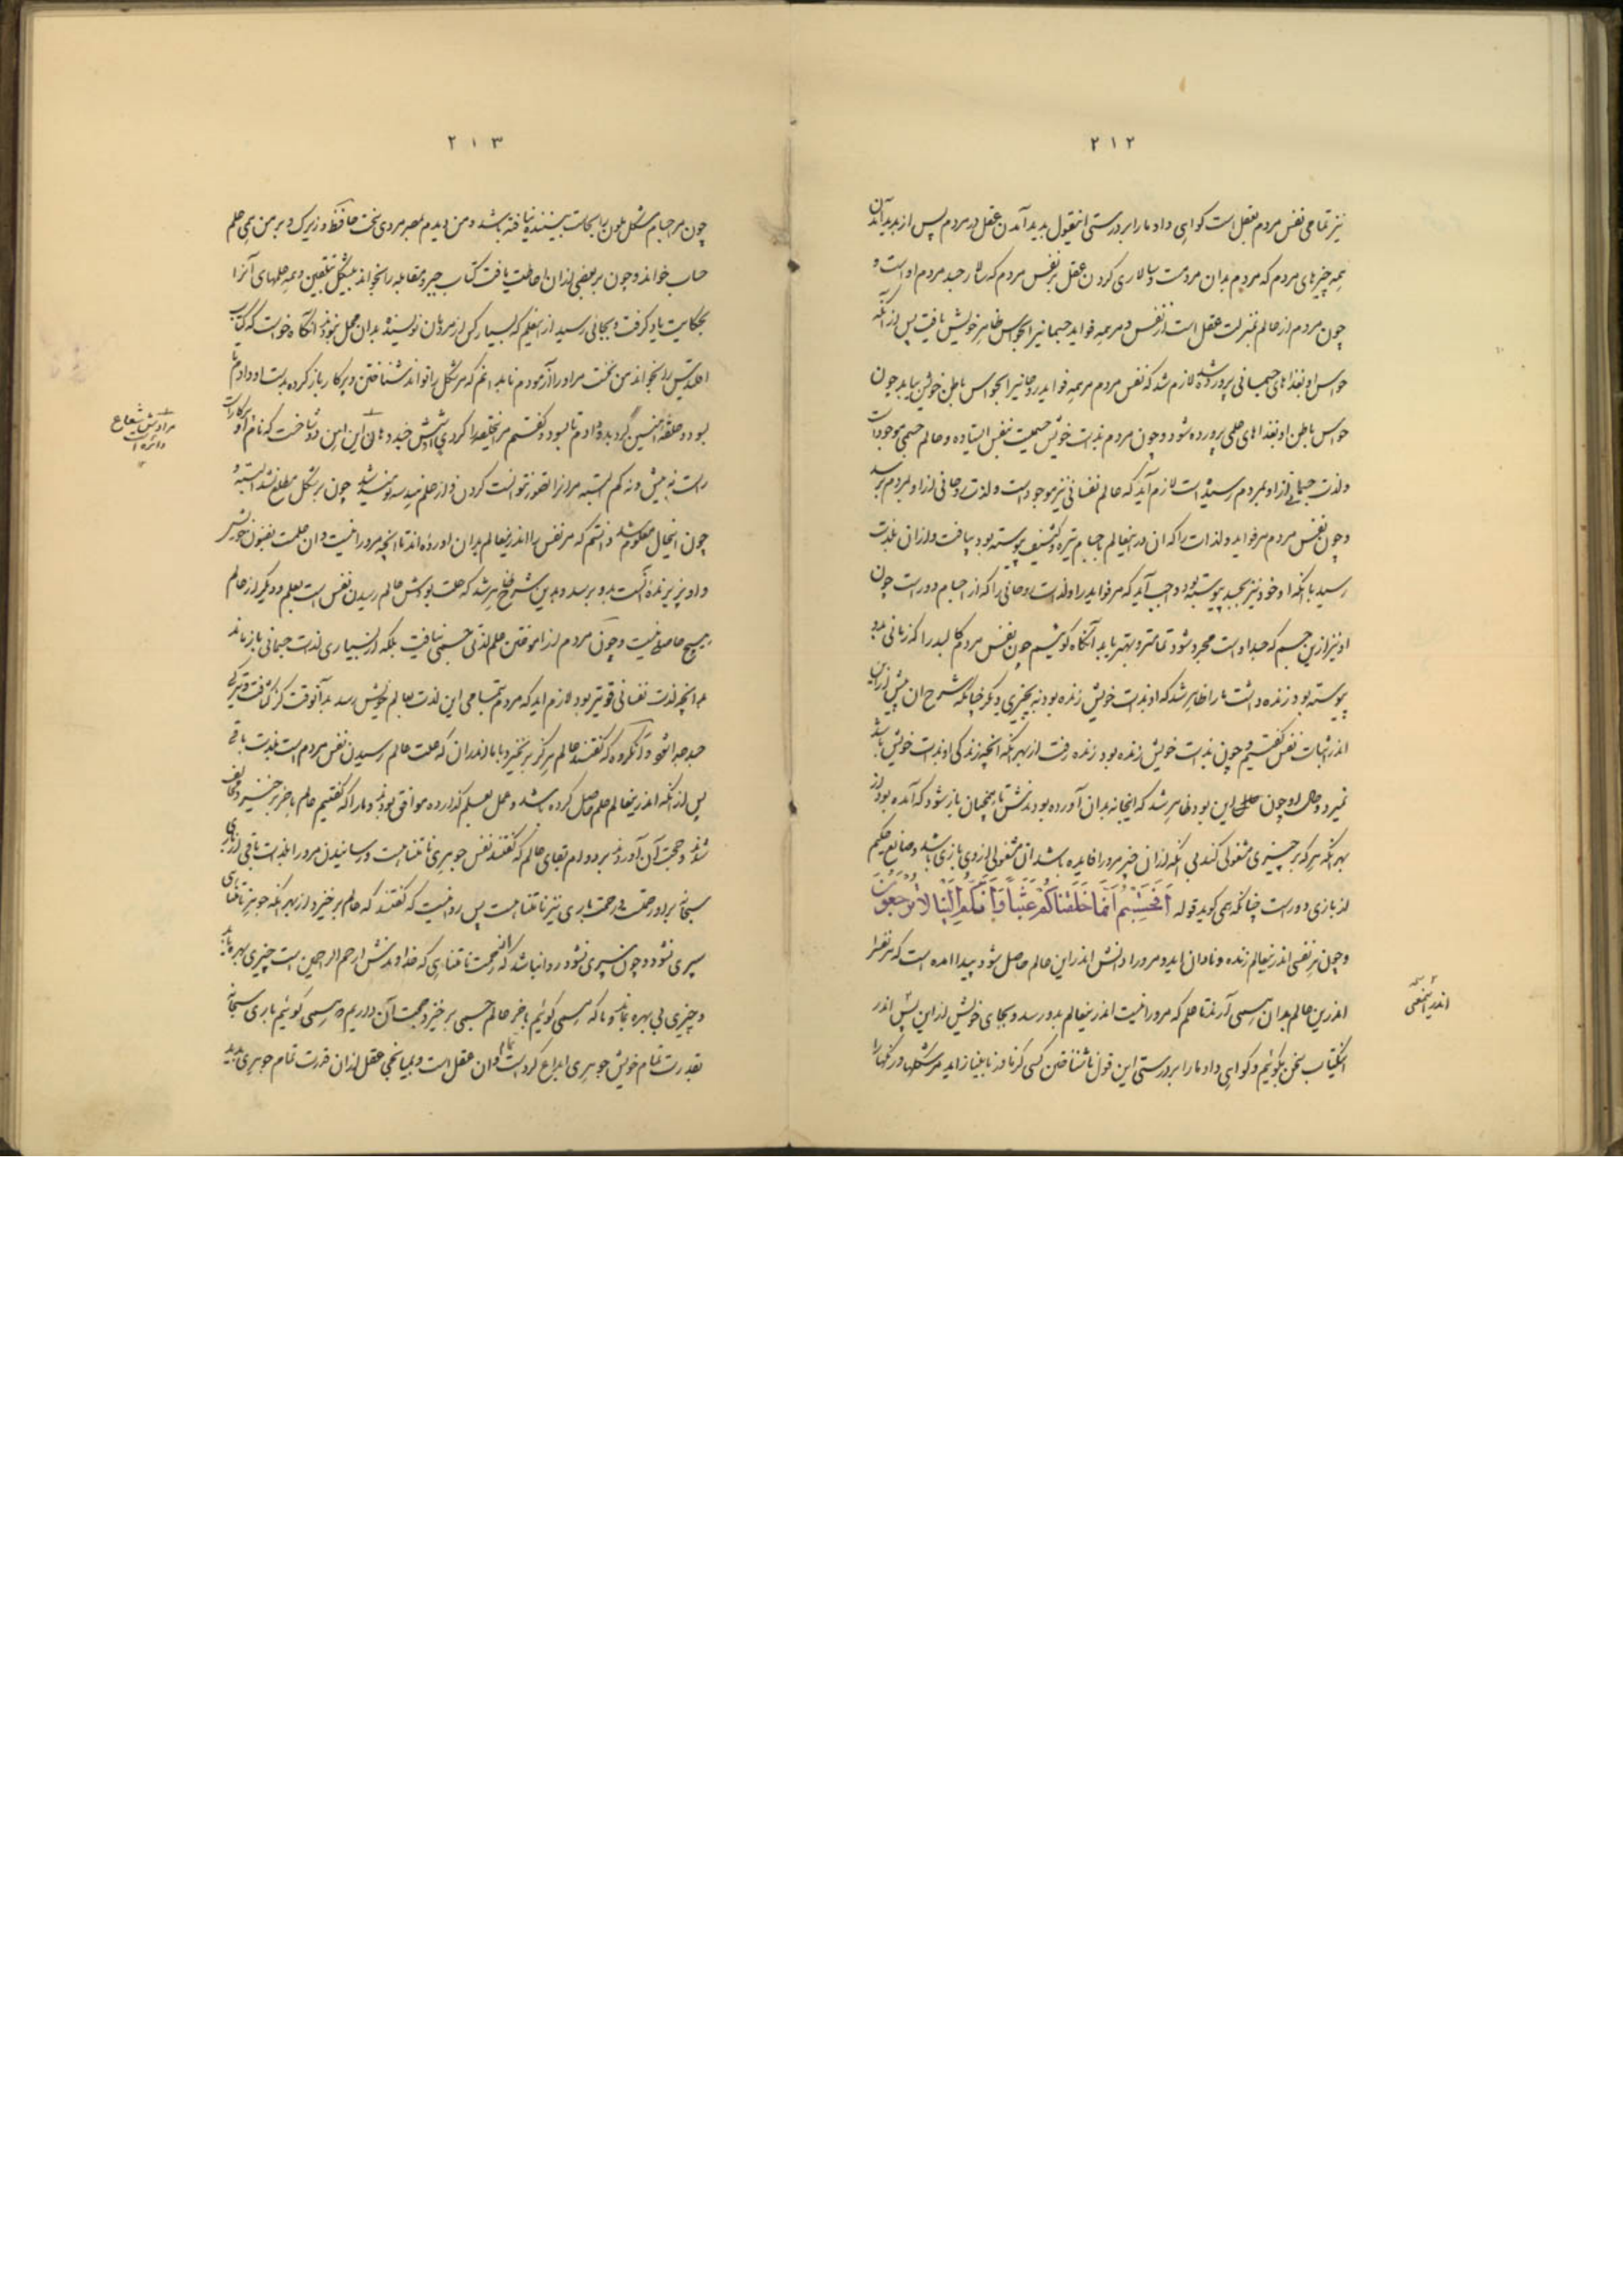 ۲۱۲
نیز تمامی نفس مردم بعقل است کواهی داد ما را بر درستی اینقول بدید آمدن عقل در مردم پس از بدید آمدن
همه چیزهای مردم که مردم بدان مردمست و سالاری کردن عقل بر نفس مردم که سالار جسد مردم او است و
چون مردم از عالم بمنزلت عقل است از نفس و مر همه فواید جسمانیرا بحواس ظاهر خویش یافت پس از آنکه
حواس او بغذاهای جسمانی پرورده شد لازم شد که نفس مردم مر همه فواید روحانیرا بحواس باطن خویش بیابد چون
حواس باطن او بغذاهای علمی پرورده شود و چون مردم بذات خویش جسمیست بنفس ایستاده و عالم جسمی موجود است
و لذت جسمانی از او بمردم رسیده است لازم آید که عالم نفسانی نیز موجود است و لذت روحانی از او بمردم برسد
و چون نفس مردم مر فواید و لذات را که ان در اینعالم باجسام تیره و کثیف پیوسته بود بیافت و از ان بلذت
رسید با انکه او خود نیز بجسد پیوسته بود واجب آید که مر فواید را و لذات روحانی را که از اجسام دور است چون
او نیز ازین جسم که جسد اوست مجرد شود تمامتر و بهتر یابد آنگاه کوئیم چون نفس مردم کالبد را که زمانی بدو
پیوسته بود زنده داشت ما را ظاهر شد که او بذات خویش زنده بود نه بچیزی دیگر چنانکه شرح ان پیش ازین
اندر اثبات نفس گفتیم و چون بذات خویش زنده بود زنده رفت از بهر انکه انچه زندگی او بذات خویش باشد
نمیرد و حال او چون این بود ظاهر شد که اینجا نه بدان آورده بودندش تا همچنان باز شود که آمده بود از
بهر انکه هر که بر چیزی مشغولی کند بی انکه از ان چیز مر او را فایده باشد ان مشغولی از وی بازی باشد و صانع حکیم
از بازی دور است چنانکه همی کوید قوله اَفَحَسِبْتُم اَنَّما خَلَقْناکُم عَبَثاً وَاَنَّکُم اِلَیْنا لا تُرْجَعُونَ
و چون هر نفسی اندر اینعالم زنده و نادان اید و مر او را دانش اندر این عالم حاصل شود پیدا امده است که مر نفس را
اندرین عالم بدان همی آرند تا علم که مر او را نیست اندر اینعالم بدو رسد و بجای خویش از این پس اندر
اینکتاب سخن بگوئیم و کواهی داد ما را بر درستی این قول ناشناختن کسی کز مادر نابینا زاید مر شکلها و رنگها را
اندر این معنی
۲۱۳
چون مر اجسام مشکل ملون را بحاست بیننده نیافته باشد و من دیدم بمصر مردی سخت حافظ و زیرک و بر من همی علم
حساب خواند و چون بر بعضی از ان احاطت یافت کتاب جبر و مقابله را بخواند بیشکل بتلقین و همه علمهای آنرا
بحکایت یاد گرفت و بجائی رسید از اینعلم که بسیار کس از مردمان نویسنده بدان محل نبودند آنگاه خواست که کتاب
اقلیدس را بخواند من نخست مر او را آزمودم تا بدانم که مر شکل را تواند شناختن و پرکار باز کرده بدست او دادم تا
بسود و حلقه انگشترین گرد بدو دادم تا بسود و گفتم مر اینحلقه را
راست نه بیش و نه کم البته مر انرا تصور نتوانست کردن و از علم هندسه نومید شد چون بر شکل مطلع نشد البته و
چون اینحال معلوم شد دانستم که مر نفس را اندر اینعالم بدان آورده اند تا انچه مر او را نیست و ان علمست بقبول خویش
و او پذیرنده آنست بدو برسد و بدین شرح ظاهر شد که علت بودش عالم رسیدن نفس است بعلم و دیگر از عالم
هیچ حاصل نیست و چون مردم از اموختن علم لذتی جسمی نیافت بلکه از بسیاری لذات جسمانی باز ماند
بدانچه لذت نفسانی قویتر بود لازم اید که مردم تمامی این لذت بعالم خویش رسد بدآنوقت کز کثافت و تیرگی
جسد جدا شود و آنگروه که گفتند عالم هرگز برنخیزد با ما اندر ان که علت عالم رسیدن نفس مردم است بلذت باقی
پس از انکه اندر اینعالم علم حاصل کرده باشد و عمل بعلم گذارده موافق بودند و ما را که گفتیم عالم باخر برخیزد مخالف
شدند و حجت آن آوردند بر دوام بقای عالم که گفتند نفس جوهری نامتناهیست و رسانیدن مر او را بلذت باقی از باری
سبحانه بر او رحمتست و رحمت باری نیز نامتناهیست پس روا نیست که گفتند که عالم برخیزد از بهر انکه جوهر نامتناهی
سپری نشود و چون سپری نشود روا نباشد که از رحمت نامتناهی که خداوندش ارحم الراحمین است چیزی بهره یابد
و چیزی بی بهره بماند و ما که همی گوئیم باخر عالم جسمی برخیزد حجت آن داریم که همی گوئیم باری سبحانه
بقدرت تمام خویش جوهری ابداع کرد تمام و ان عقل است و بمیانجی عقل از ان قدرت تمام جوهری بدید